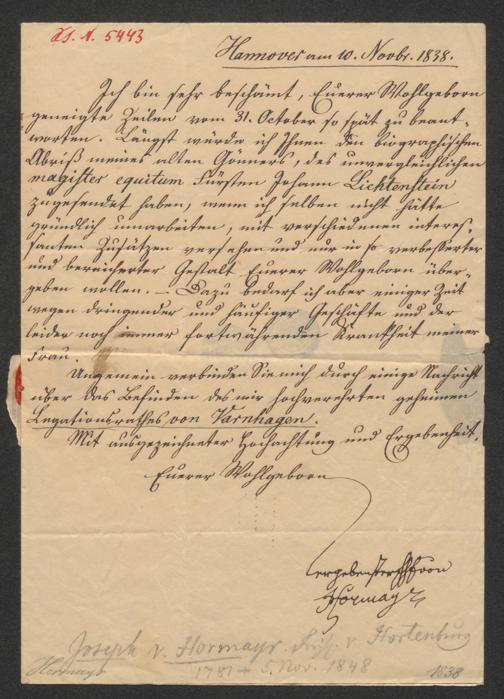 H. I. N. 5443
Hannover am 10. Novbr. 1838.
Ich bin sehr beschämt, Euerer Wohlgeborn
geneigte Zeilen vom 31. October so spät zu beant-
worten. Längst würde ich Ihnen den biographischen
Abriß meines alten Gönners, des unvergleichlichen
magister equitum Fürsten Johann Lichtenstein
zugesendet haben, wenn ich selben nicht hätte
gründlich umarbeiten, mit verschiedenen interes-
santen Zusätzen versehen und nur in so verbesserter
und bereicherter Gestalt Euerer Wohlgeborn über-
geben wollen. – Dazu bedarf ich aber einiger Zeit
wegen dringender und häufiger Geschäfte und der
leider noch immer fortwährenden Krankheit meiner
Frau.
Ungemein verbinden Sie mich durch einige Nachricht
über das Befinden des mir hochverehrten geheimen
Legationsrathes von Varnhagen.
Mit ausgezeichneter Hochachtung und Ergebenheit.
Euerer Wohlgeborn
ergebenster
Hormayr
Joseph v. Hormayr Frh. v. Hortenburg
1781 + 5. Nov. 1848
Hormayr 1838